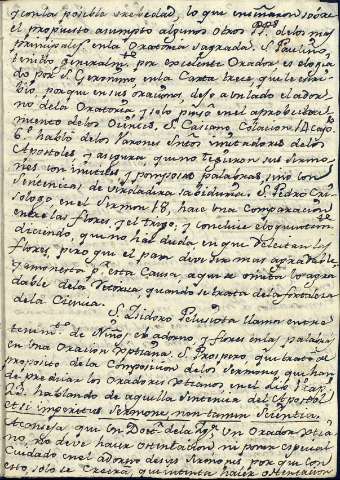 y con la posible brebedad, lo que enseñaron sobre
el propuesto assumpto algunos otros PP. de los mas
principales en la Oratoria sagrada. S. Paulino,
tenido generalm.te por excelente Orador es elogia
do por S. Geronimo en la Carta trece, que le escri
bio, porque en sus oraciones, dejo a un lado el ador
no dela Oratoria y solo puso en el aprobechami
miento de los Oientes. S. Casiano Colacion 1 a cap.
6.º habló delos Varones Santos imitadores delos
Apostoles y asegura, que no tegieron sus sermo
nes con inutiles, y pomposas palabras, sino con
sentencias de verdadera sabiduria. S. Pedro Cri
sologo, en el Sermon 18, hace una comparacion
entre las flores, y el trigo, y concluie eloquentem.te
diciendo, que no hai duda en que deleitan las
flores, pero que el pan deve ser mas apreciable
y amonesta p.r esta causa, aqui se omita lo agra
dable dela Retorica quando se trata dela fortaleza
dela Ciencia.
S. Isidoro Pelusiota llama entre
tenim.to de Niños, el adorno, y flores en las palabras
en una Oracion Xptiana. S. Prospero, que trató de
proposito dela Composicion delos Sermones, que han
de predicar los Oradores Xptianos en el lib. 1 cap.
23. hablando de aquella sentencia del Apostol
et si imperitus Sermone, non tamen Scientia,
Aconseja que un Doct.r dela Yg.a, un Orador Xptia
no, no deve hacer ostentacion ni poner especial
Cuidado en el adorno de sus sermones, por que con
esto, solo se creerá, que intenta hacer ostentacion